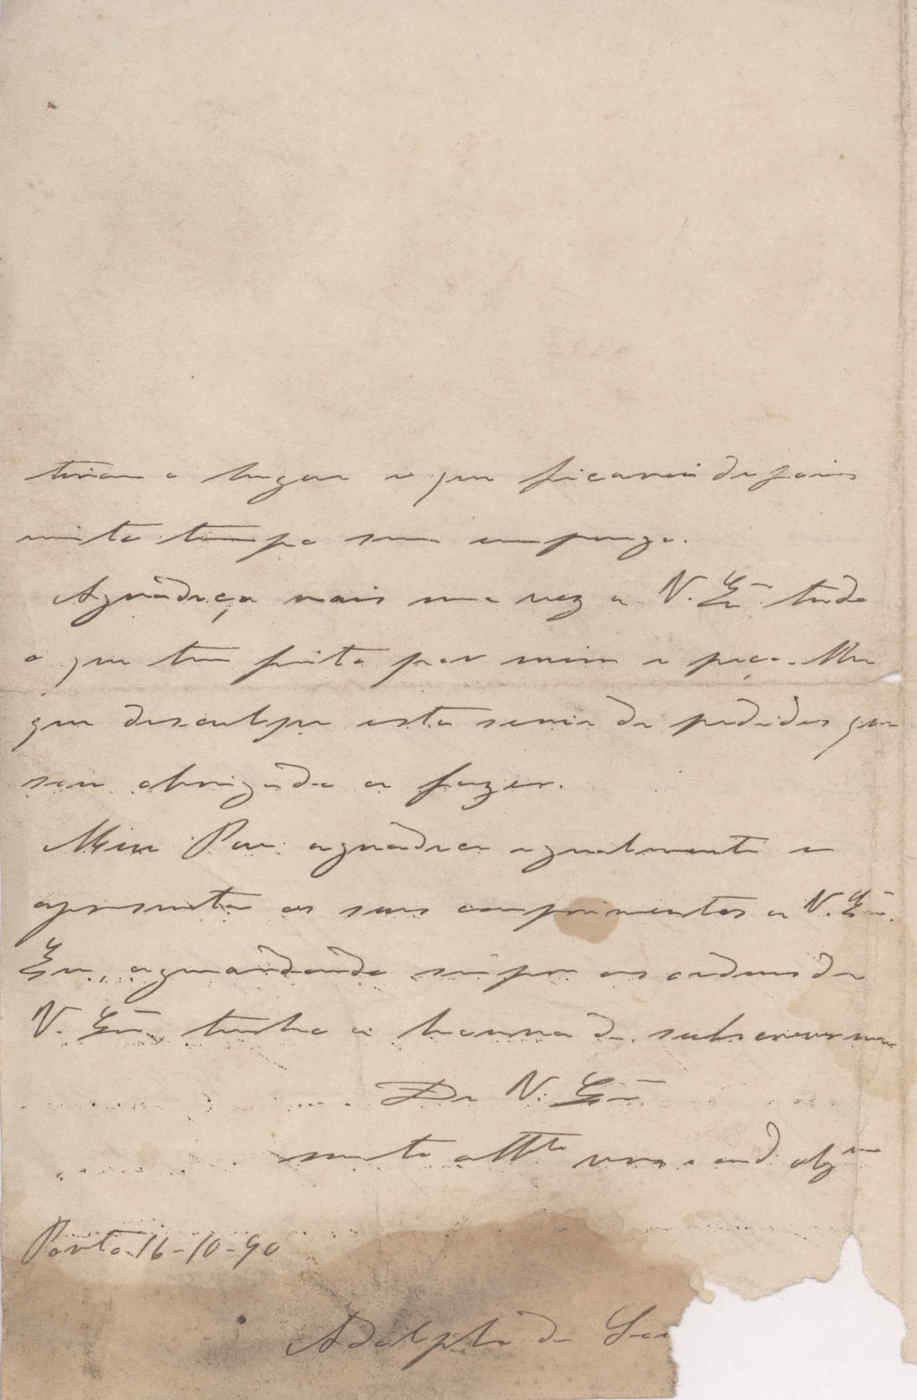 tirar o lugar e que ficarei depois
muito tempo sem emprego.
Agradeço mais uma vez a V. Exª tudo
o que tem feito por mim e peço-lhe
que desculpe esta serie de pedidos que
sou obrigado a fazer.
Meu Pae agradece egualmente e
apresenta os seus comprimentos a V. Exª.
Eu, aguardando sempre as ordens de
V. Exª, tenho a honra de subscrever-me
De V. Exª
muito attº venº e crdº obgmo
Porto 16-10-90
Adolpho de